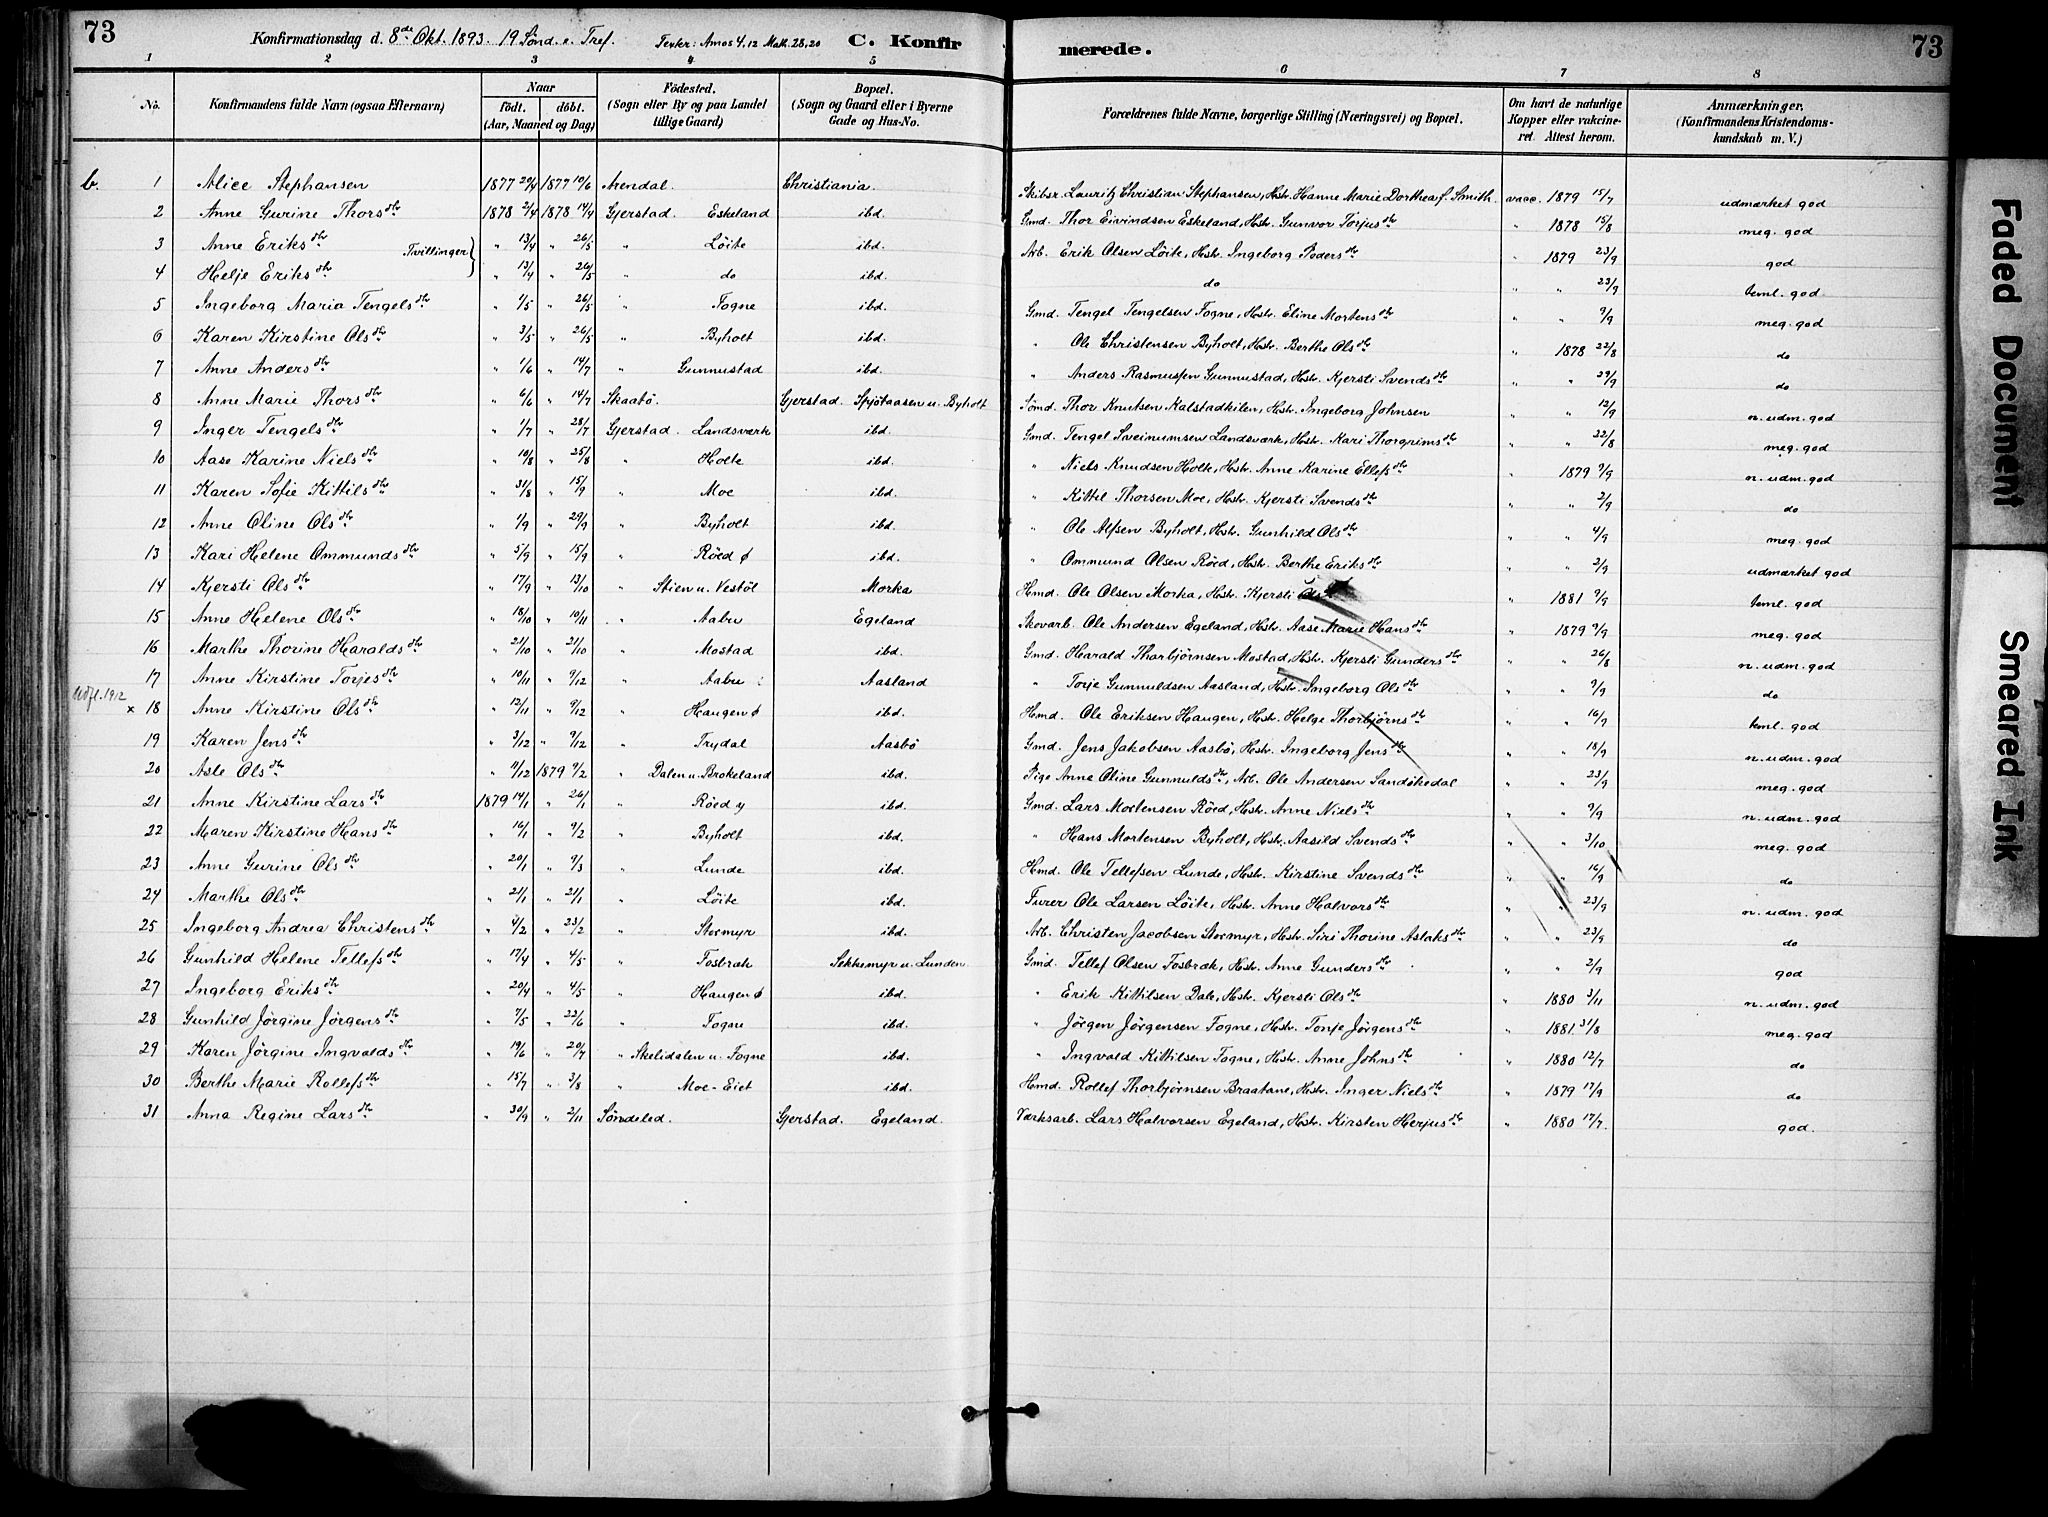 73
Konfirmationsdag d. 8de Okt. 1893. 19 Sönd. e. Tref. Texter: Amos 4,12 Math. 28,20 C. Konfirmerede.
73
1 2 3 4 5 6 7 8
No. Konfirmandens fulde Navn (ogsaa Efternavn) Naar födt. döbt. (Aar, Maaned og Dag) Födested. (Sogn eller By og paa Landet tillige Gaard) Bopæl. (Sogn og Gaard eller i Byerne Gade og Hus-No. Forældrenes fulde Navne, borgerlige Stilling (Næringsvei) og Bopæl. Om havt de naturlige Kopper eller vakcineret. Attest herom. Anmærkninger. (Konfirmandens Kristendomskundskab m. V.)
b. 1 Alice Stephansen 1877 20/4 1877 10/6 Arendal. Christiania. Skibsr. Lauritz Christian Stephansen, Hstr. Hanne Marie Dorthea f. Smith. vacc. 1879 15/7 udmærket god
2 Anne Gurine Thorsdtr 1878 2/4 1878 14/4 Gjerstad. Eskeland ibd. Gmd. Thor Eivindsen Eskeland, Hstr. Gunvor Torjusdtr " 1878 15/8 meg. god
3 Anne Eriksdtr Tvillinger " 13/4 " 26/5 " Löite ibd. Arb. Erik Olsen Löite, Hstr. Ingeborg Pedersdtr " 1879 23/9 god
4 Helje Eriksdtr " 13/4 " 26/5 " do ibd. do " " 23/9 teml. god
5 Ingeborg Maria Tengelsdtr " 1/5 " 26/5 " Fogne ibd. Gmd. Tengel Tengelsen Fogne, Hstr. Eline Mortensdtr " " 9/9 meg. god
6 Karen Kirstine Olsdtr " 3/5 " 26/5 " Byholt ibd. " Ole Christensen Byholt, Hstr. Berthe Olsdtr " 1878 22/8 do
7 Anne Andersdtr " 1/6 " 14/7 " Gunnustad ibd. " Anders Rasmussen Gunnustad, Hstr. Kjersti Svendsdtr " " 29/9 do
8 Anne Marie Thorsdtr " 6/6 " 14/7 Skaatö. Gjerstad. Spjötaasen u. Byholt Sömd. Thor Knutsen Kalstadkilen, Hstr. Ingeborg Johnsen " " 12/9 n. udm. god
9 Inger Tengelsdtr " 1/7 " 28/7 Gjerstad. Landsværk ibd. Gmd. Tengel Sveinumsen Landsværk, Hstr. Kari Thorgrimsdtr " " 22/8 meg. god
10 Aase Karine Nielsdtr " 10/8 " 25/8 " Holte ibd. " Niels Knudsen Holte, Hstr. Anne Karine Ellefsdtr " 1879 9/9 n. udm. god
11 Karen Sofie Kittilsdtr " 31/8 " 15/9 " Moe ibd. " Kittil Thorsen Moe, Hstr. Kjersti Svendsdtr " " 2/9 do
12 Anne Oline Olsdtr " 1/9 " 29/9 " Byholt ibd. " Ole Alfsen Byholt, Hstr. Gunhild Olsdtr " " 4/9 meg. god
13 Kari Helene Ommundsdtr " 5/9 " 15/9 " Röed ö ibd. " Ommund Olsen Röed, Hstr. Berthe Eriksdtr " " 2/9 udmærket god
14 Kjersti Olsdtr " 17/9 " 13/10 " Stien u. Vestöl Morka Hmd. Ole Olsen Morka, Hstr. Kjersti Ols " 1881 9/9 teml. god
15 Anne Helene Olsdtr " 18/10 " 10/11 " Aabu Egeland Skovarb. Ole Andersen Egeland, Hstr. Aase Marie Hansdtr " 1879 9/9 meg. god
16 Marthe Thorine Haraldsdtr " 2/10 " 2/10 " Mostad ibd. Gmd. Harald Thorbjörnsen Mostad, Hstr. Kjersti Gundersdtr " " 26/8 n. udm. god
17 Anne Kirstine Torjesdtr " 10/11 " 9/12 " Aabu Aasland " Torje Gunnuldsen Aasland, Hstr. Ingeborg Olsdtr " " 9/9 do
Udfl. 1912 × 18 Anne Kirstine Olsdtr " 12/11 " 9/12 " Haugen ö ibd. Hmd. Ole Eriksen Haugen, Hstr. Helge Thorbjörnsdtr " " 16/9 teml. god
19 Karen Jensdtr " 3/12 " 9/12 " Trydal Aasbö Gmd. Jens Jakobsen Aasbö, Hstr. Ingeborg Jensdtr " " 18/9 n. udm. god
20 Asle Olsdtr " 11/12 1879 9/2 " Dalen u. Brokeland ibd. Pige Anna Oline Gunnuldsdtr, Arb. Ole Andersen Sandökedal " " 23/9 meg. god
21 Anne Kirstine Larsdtr 1879 14/1 " 26/1 " Röed y ibd. Gmd. Lars Mortensen Röed, Hstr. Anne Nielsdtr " " 9/9 n. udm. god
22 Maren Kirstine Hansdtr " 16/1 " 9/2 " Byholt ibd. " Hans Mortensen Byholt, Hstr. Aasild Svendsdtr " " 3/10 meg. god
23 Anne Gurine Olsdtr " 20/1 " 9/3 " Lunde ibd. Hmd. Ole Tellefsen Lunde, Hstr. Kirstine Svendsdtr " " 16/9 do
24 Marthe Olsdtr " 21/1 " 21/1 " Löite ibd. Furer Ole Larsen Löite, Hstr. Anne Halvorsdtr " " 23/9 n. udm. god
25 Ingeborg Andrea Christensdtr " 4/2 " 23/2 " Stormyr ibd. Arb. Christen Jacobsen Stormyr, Hstr. Siri Thorine Aslaksdtr " " 23/9 do
26 Gunhild Helene Tellefsdtr " 17/4 " 4/5 " Fosbræk Sekkemyr u. Lunden Gmd. Tellef Olsen Fosbræk, Hstr. Anne Gundersdtr " " 2/9 god
27 Ingeborg Eriksdtr " 20/4 " 4/5 " Haugen ö ibd. " Erik Kittilsen Dale, Hstr. Kjersti Olsdtr " 1880 3/11 n. udm. god
28 Gunhild Jörgine Jörgensdtr " 7/5 " 22/6 " Fogne ibd. " Jörgen Jörgensen Fogne, Hstr. Tonje Jörgensdtr " 1881 31/8 meg. god
29 Karen Jörgine Ingvaldsdtr " 19/6 " 20/7 " Skelidalen u. Fogne ibd. " Ingvald Kittilsen Fogne, Hstr. Anne Johnsdtr " 1880 12/7 do
30 Berthe Marie Rollefsdtr " 15/7 " 3/8 " Moe-Eiet ibd. Hmd. Rollef Thorbjörnsen Braatane, Hstr. Inger Nielsdtr " 1879 17/9 do
31 Anna Regine Larsdtr " 30/9 " 2/11 Söndeled. Gjerstad. Egeland. Værksarb. Lars Halvorsen Egeland, Hstr. Kirsten Herjusdtr " 1880 17/7. god.
Faded Document
Smeared Ink